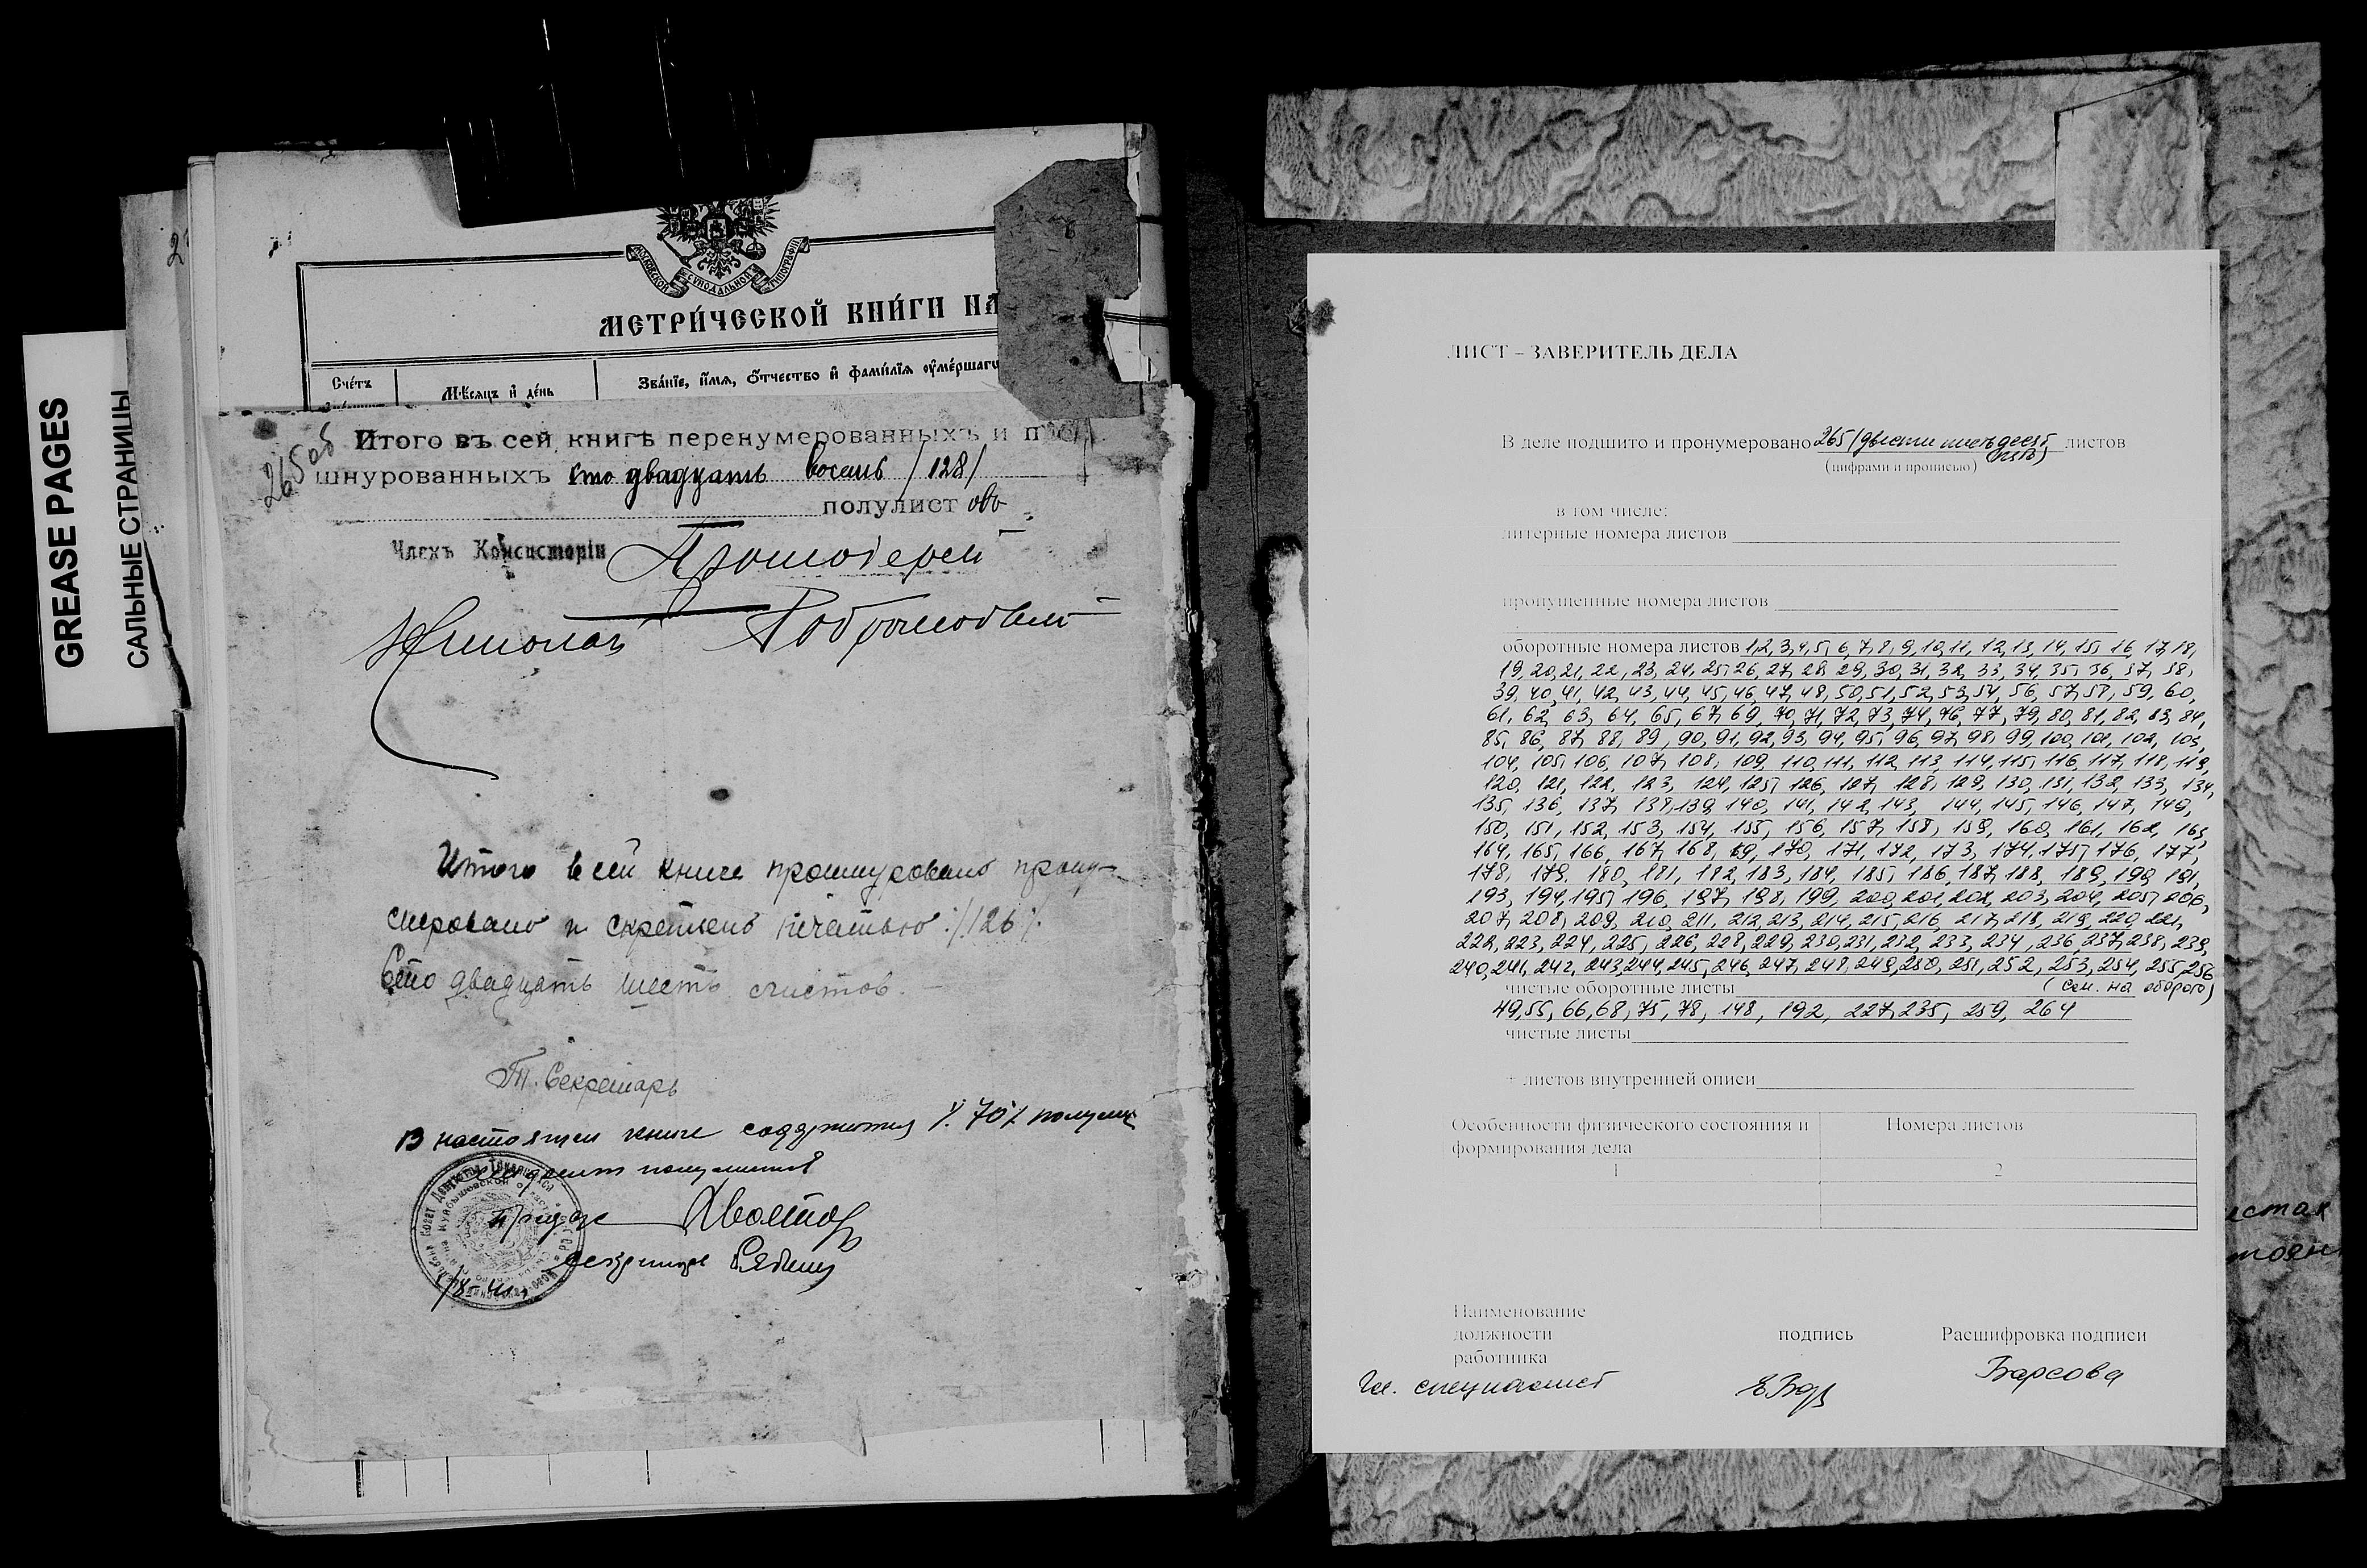 GREASE PAGES
САЛЬНЫЕ СТРАНИЦЫ
МОСКОВСКОЙ СѴНОДАЛЬНОЙ ТИПОГРАФІИ
МЕТРИ́ЧЕСКОЙ КНИ́ГИ НА
Сче́тъ
Мѣ́сяцъ и де́нь
Зва́нїе, и́мѧ, о́тчество и фами́лїѧ оуме́ршаго
265об
Итого въ сей книгѣ перенумерованныхъ и про
шнурованныхъ сто двадцать восемь /128/
полулист овъ
Членъ Консисторіи Протоіерей
Николай
Итого в сей книге прошнуровано прону-
меровано и скреплено печатью ·/.126·/.
Сто двадцать шесть листов. —
Т. Секретарь
В настоящей книге содержится ·/.70·/. полулис
полулистов
Хвостов
секретарь
ЛИСТ – ЗАВЕРИТЕЛЬ ДЕЛА
В деле подшито и пронумеровано 265 (двести шестьдесят пять) листов
(цифрами и прописью)
в том числе:
литерные номера листов
пропущенные номера листов
оборотные номера листов 1,2,3,4,5, 6,7,8,9,10,11, 12,13,14,15, 16, 17,18,
19,20,21,22,23,24,25,26,27,28,29,30,31,32,33,34,35,36,37,38,
39,40,41,42,43,44,45,46,47,48,50,51,52,53,54,56,57,58,59,60,
61,62,63,64,65,67,69,70,71,72,73,74,76,77,79,80,81,82,83,84,
85,86,87,88,89,90,91,92,93,94,95,96,97,98,99,100,101,102,103,
104,105,106,107,108,109,110,111,112,113,114,115,116,117,118,119,
120,121,122,123,124,125,126,127,128,129,130,131,132,133,134,
135,136,137,138,139,140,141,142,143,144,145,146,147,149,
150,151,152,153,154,155,156,157,158,159,160,161,162,163,
164,165,166,167,168,169,170,171,172,173,174,175,176,177,
178,179,180,181,182,183,184,185,186,187,188,189,190,191,
193,194,195,196,197,198,199,200,201,202,203,204,205,206,
207,208,209,210,211,212,213,214,215,216,217,218,219,220,221,
222,223,224,225,226,228,229,230,231,232,233,234,236,237,238,239,
240,241,242,243,244,245,246,247,248,249,250,251,252,253,254,255,256
чистые оборотные листы (см. на обороте)
49,55,66,68,75,78,148,192,227,235,259,264
чистые листы
+ листов внутренней описи
Особенности физического состояния и формирования дела
Номера листов
1
2
Наименование
должности
работника
подпись
Расшифровка подписи
Гл. специалист
Барсова